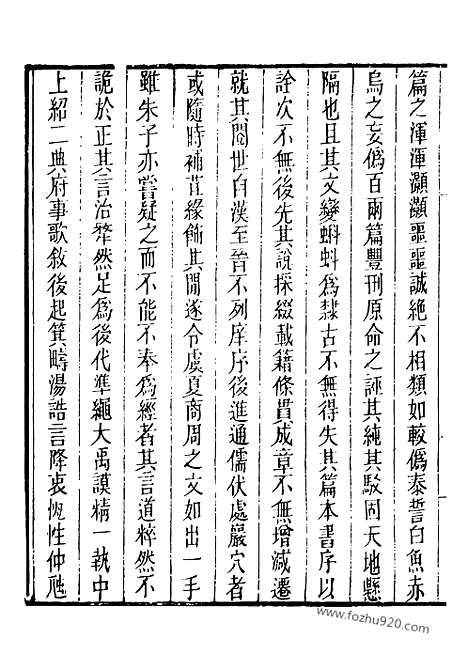 篇之渾渾灝灝噩噩誠絶不相類如較僞泰誓白魚赤
烏之妄僞百兩篇豐刑原命之誣其純其駁固天地懸
隔也且其文變蝌蚪爲隸古不無得失其篇本書序以
詮次不無後先其說採綴載籍條貫成章不無增減遷
就其閱世自漢至晉不列庠序後進通儒伏處巖穴者
或隨時補苴緣飾其閒遂令虞夏商周之文如出一手
雖朱子亦嘗疑之而不能不奉爲經者其言道粹然不
詭於正其言治犂然足爲後代準繩大禹謨精一執中
上紹二典府事歌敘後起箕疇湯誥言降衷恆性仲虺
www.fozhu920.com